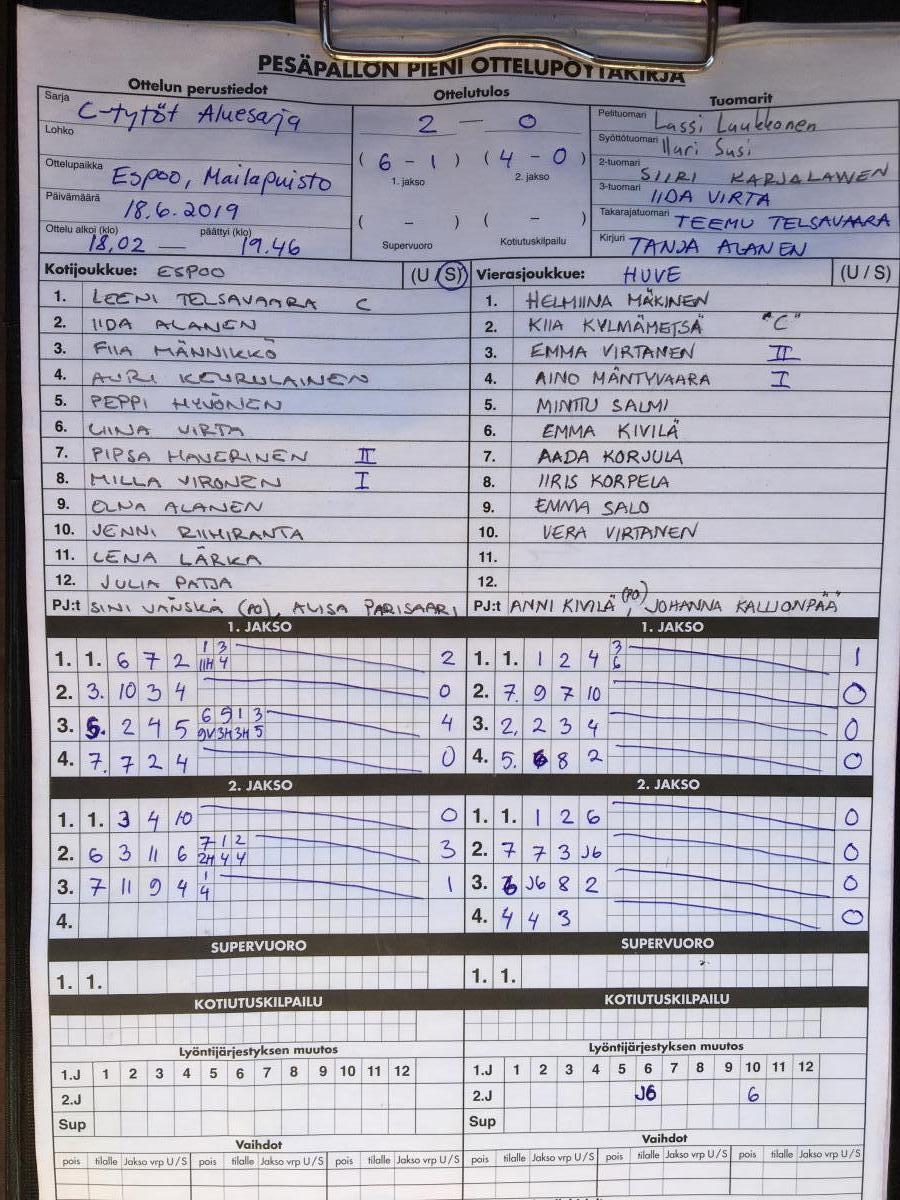 PESÄPALLON PIENI OTTELUPÖYTÄKIRJA
Ottelun perustiedot
Ottelutulos
Tuomarit
Sarja C-tytöt Aluesarja
Lohko
Ottelupaikka Espoo, Mailapuisto
Päivämäärä 18.6.2019
Ottelu alkoi (klo) 18.02 — päättyi (klo) 19.46
2 — 0
( 6 - 1 ) ( 4 - 0 )
1. jakso 2. jakso
( - ) ( - )
Supervuoro Kotiutuskilpailu
Pelituomari Lassi Luukkonen
Syöttötuomari Ilari Susi
2-tuomari SIIRI KARJALAINEN
3-tuomari IIDA VIRTA
Takarajatuomari TEEMU TELSAVAARA
Kirjuri TANJA ALANEN
Kotijoukkue: ESPOO (U / S)
1. LEENI TELSAVAARA C
2. IIDA ALANEN
3. FIIA MÄNNIKKÖ
4. AURI KEURULAINEN
5. PEPPI HYVÖNEN
6. LIINA VIRTA
7. PIPSA HAVERINEN II
8. MILLA VIRONEN I
9. ELNA ALANEN
10. JENNI RIIHIRANTA
11. LENA LÄRKA
12. JULIA PATJA
PJ:t SINI VÄNSKÄ (PO), ALISA PARISAARI
Vierasjoukkue: HUVE (U / S)
1. HELMIINA MÄKINEN
2. KIIA KYLMÄMETSÄ "C"
3. EMMA VIRTANEN II
4. AINO MÄNTYVAARA I
5. MINTTU SALMI
6. EMMA KIVILÄ
7. AADA KORJULA
8. IIRIS KORPELA
9. EMMA SALO
10. VERA VIRTANEN
11.
12.
PJ:t ANNI KIVILÄ (PO), JOHANNA KALLIONPÄÄ
1. JAKSO
1. 1. 6 7 2 1 3 2
11H 4
2. 3. 10 3 4 0
3. 5. 2 4 5 6 5 1 3 4
9V 3H 3H 5
4. 7. 7 2 4 0
1. JAKSO
1. 1. 1 2 4 3 1
6
2. 7. 9 7 10 0
3. 2. 2 3 4 0
4. 5. 6 8 2 0
2. JAKSO
1. 1. 3 4 10 0
2. 6 3 11 6 7 1 2 3
2H 4 4
3. 7 11 9 4 1 1
4
4.
2. JAKSO
1. 1. 1 2 6 0
2. 7 7 3 J6 0
3. 6 J6 8 2 0
4. 4 4 3 0
SUPERVUORO
1. 1.
SUPERVUORO
1. 1.
KOTIUTUSKILPAILU
KOTIUTUSKILPAILU
Lyöntijärjestyksen muutos
1.J 1 2 3 4 5 6 7 8 9 10 11 12
2.J
Sup
Lyöntijärjestyksen muutos
1.J 1 2 3 4 5 6 7 8 9 10 11 12
2.J J6 6
Sup
Vaihdot
pois tilalle Jakso vrp U / S pois tilalle Jakso vrp U / S pois tilalle Jakso vrp U / S
Vaihdot
pois tilalle Jakso vrp U / S pois tilalle Jakso vrp U / S pois tilalle Jakso vrp U / S